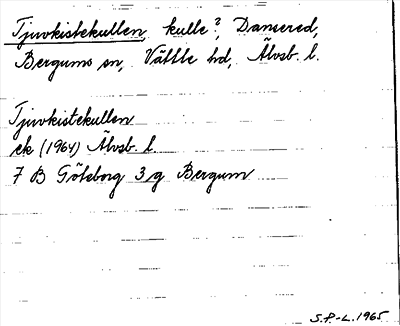 Tjuvkistekullen, kulle?, Dansered,
Bergums sn, Vättle hd, Älvsb. l.
Tjuvkistekullen
ek (1964) Älvsb. l.
7 B Göteborg 3 g Bergum
S.P.-L. 1965